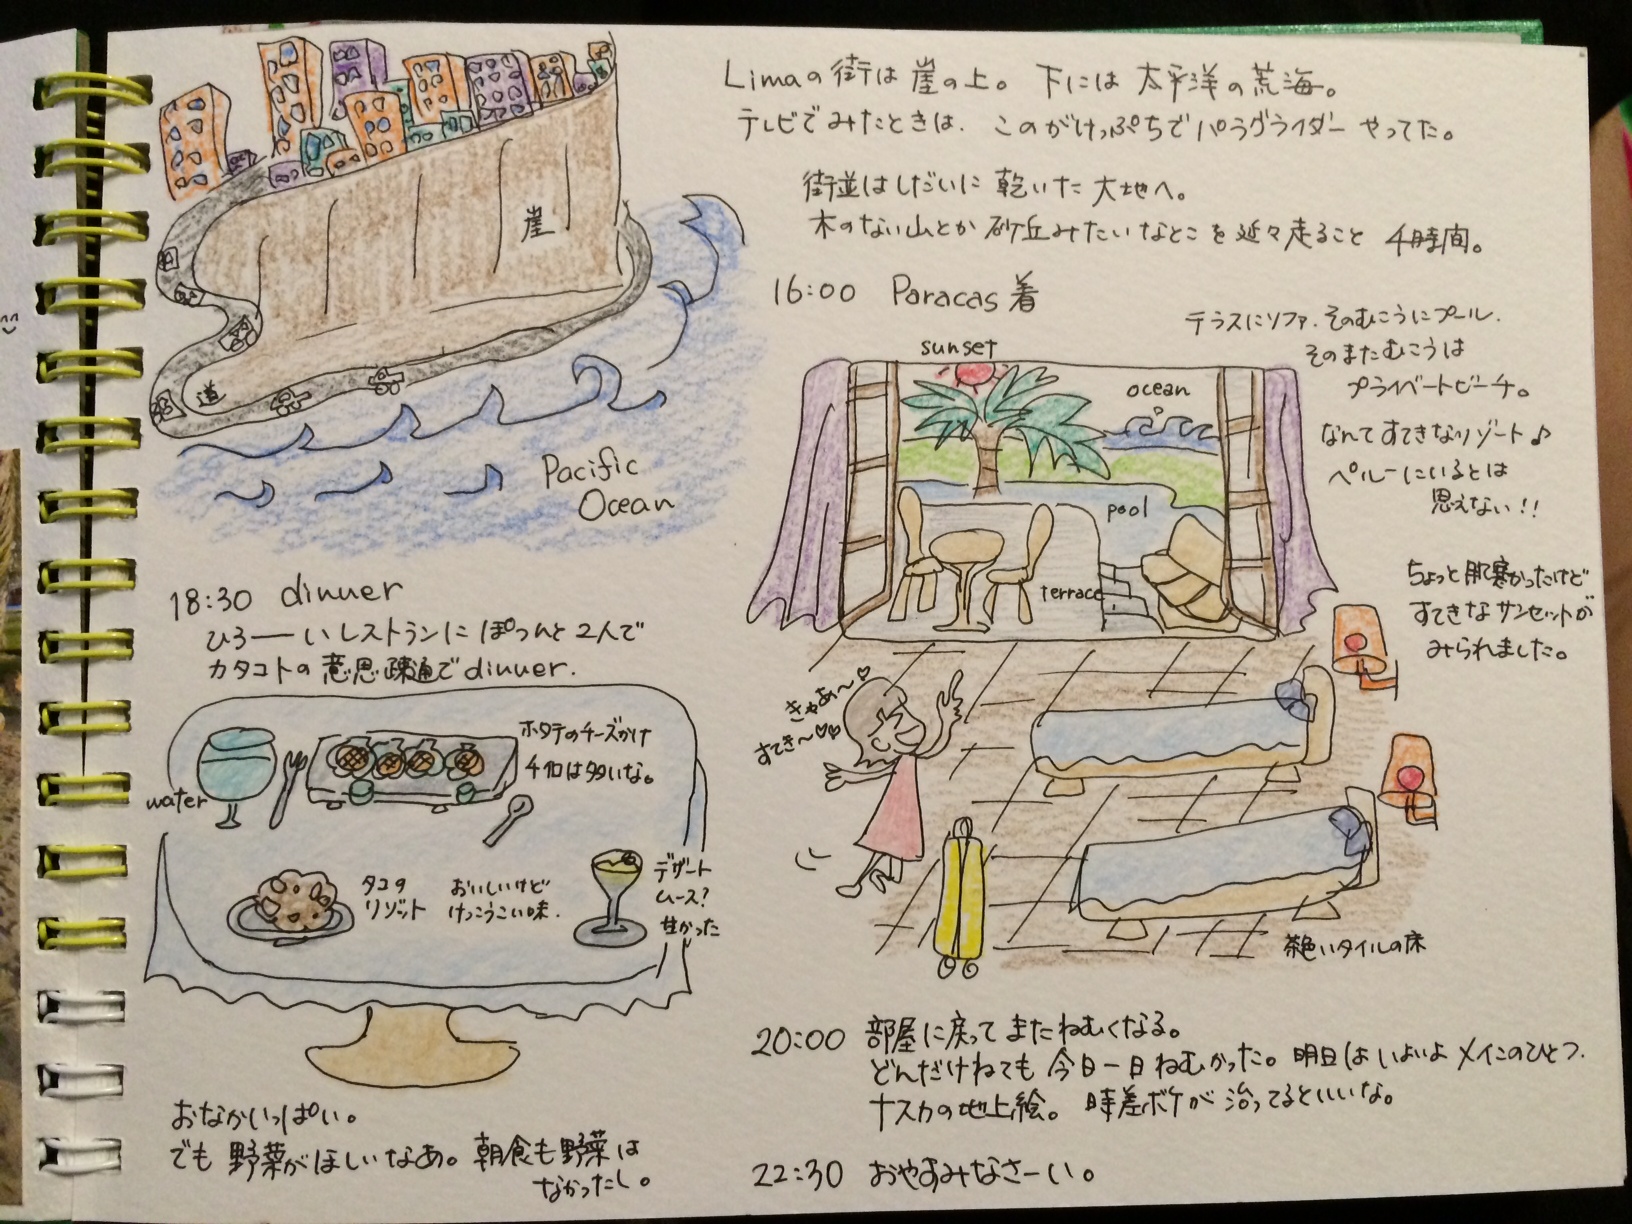 Limaの街は崖の上。下には太平洋の荒海。
テレビでみたときは、このがけっぷちでパラグライダーやってた。
街並はしだいに乾いた大地へ。
木のない山とか砂丘みたいなとこを延々走ること4時間。
崖
道
Pacific
Ocean
16:00 Paracas着
テラスにソファ、そのむこうにプール、
そのまたむこうは
プライベートビーチ。
なんてすてきなリゾート♪
ペルーにいるとは
思えない!!
sunset
ocean
pool
terrace
ちょっと肌寒かったけど
すてきなサンセットが
みられました。
きゃあ〜♡
すてき〜♡♡
茶色いタイルの床
18:30 dinner
ひろーいレストランにぽつんと2人で
カタコトの意思疎通でdinner.
water
ホタテのチーズかけ
4個は多いな。
タコの
リゾット
おいしいけど
けっこうこい味.
デザート
ムース?
甘かった
おなかいっぱい。
でも野菜がほしいなあ。朝食も野菜は
なかったし。
20:00 部屋に戻ってまたねむくなる。
どんだけねても今日一日ねむかった。明日はいよいよメインのひとつ、
ナスカの地上絵。時差ボケが治ってるといいな。
22:30 おやすみなさーい。